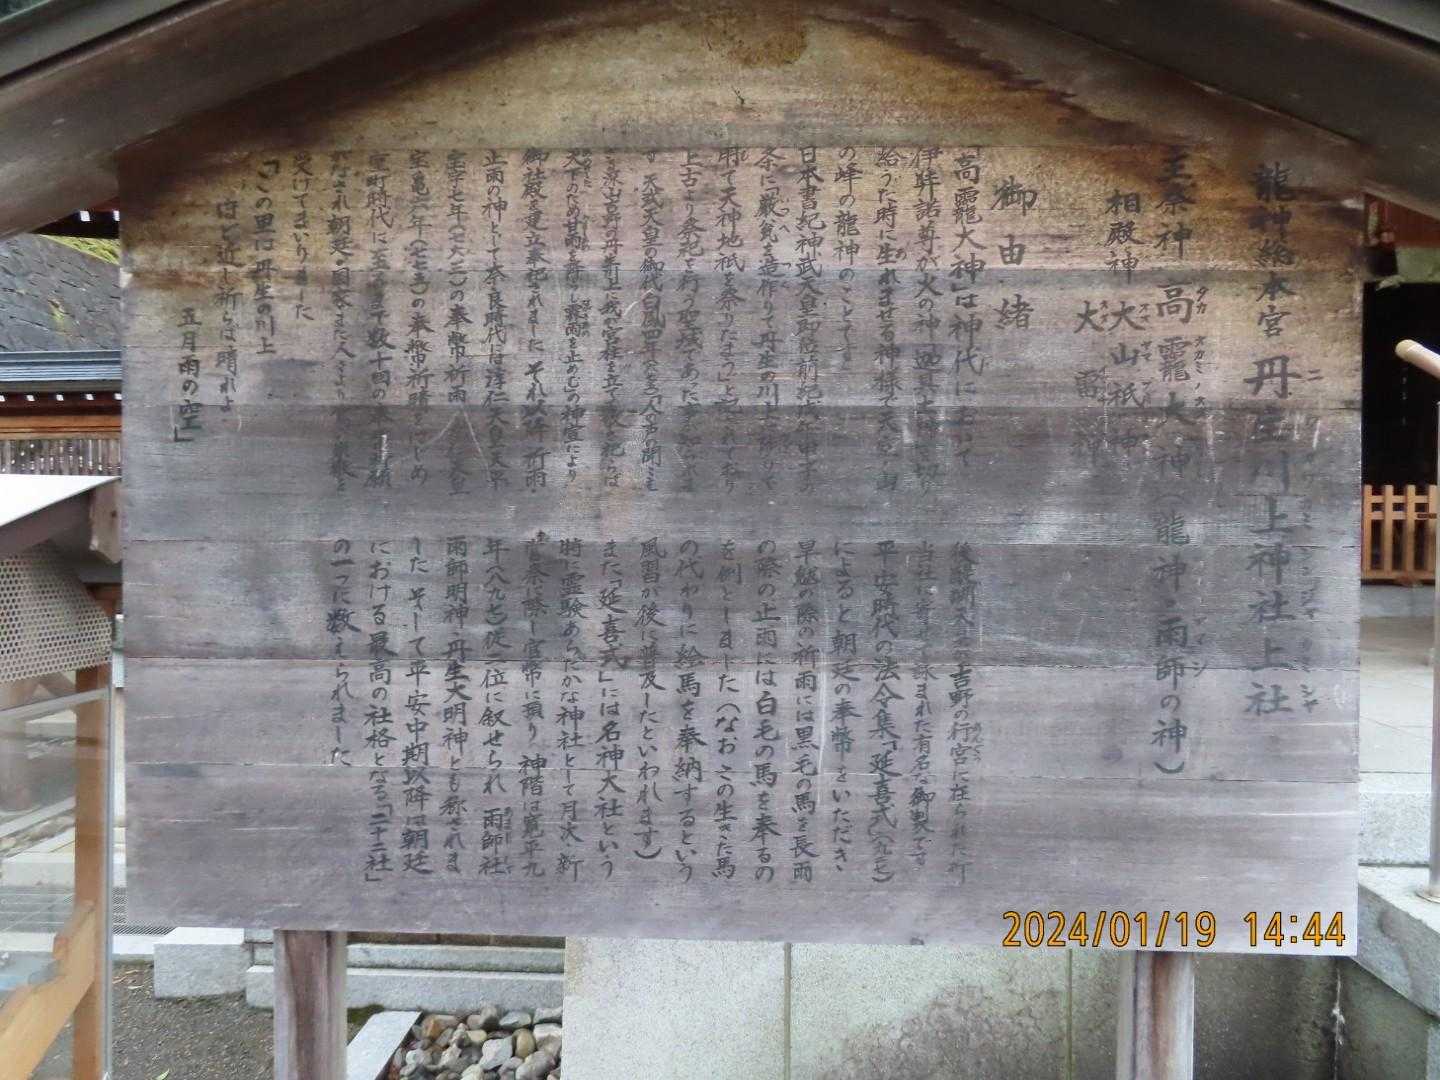 龍神総本宮 丹生川上神社上社
主祭神 高龗大神(龍神・雨師の神)
相殿神 大山祇神
大雷神
御由緒
「高龗大神」は神代において
伊弉諾尊が火の神迦具土神を切り
給うた時に生れませる神様で天の山
の峰の龍神のことです
日本書紀神武天皇即位前紀戊午甲子の
条に「厳瓮を造作りて丹生の川上に陟りて
用て天神地祇を祭りたまう」と記されており
上古より祭祀を行う聖域であった事が知られま
す 天武天皇の御代白鳳四年 「人声の聞こえ
ざる深山吉野の丹生川上に我が宮柱を立て敬祀らば
天下のため甘雨を降らし霖雨を止めむ」の神宣により
御社殿を建立奉祀されました それ以降 祈雨・
止雨の神として奈良時代には淳仁天皇の天平
宝字七年(七六三)の奉幣祈雨 天皇
宝亀六年(七七五)の奉幣祈晴をはじめ
室町時代に至るまで数十回の奉幣祈願
がなされ朝廷・国家また人々より 崇敬を
受けてまいりました
「この里は丹生の川上
ほど近し祈らば晴れよ
五月雨の空」
後醍醐天皇が吉野の行宮に在られた折
当社に寄せて詠まれた有名な御製です
平安時代の法令集「延喜式」(九二七)
によると朝廷の奉幣をいただき
旱魃の際の祈雨には黒毛の馬を長雨
の際の止雨には白毛の馬を奉るの
を例としました(なおこの生きた馬
の代わりに絵馬を奉納するという
風習が後に普及したといわれます)
また「延喜式」には名神大社という
時に霊験あらたかな神社として月次・新
嘗祭に際し官幣に預り 神階は寛平九
年(八九七)従二位に叙せられ 雨師社
雨師明神・丹生大明神とも称されま
した そして平安中期以降は朝廷
における最高の社格となる「二十二社」
の一つに数えられました
2024/01/19 14:44